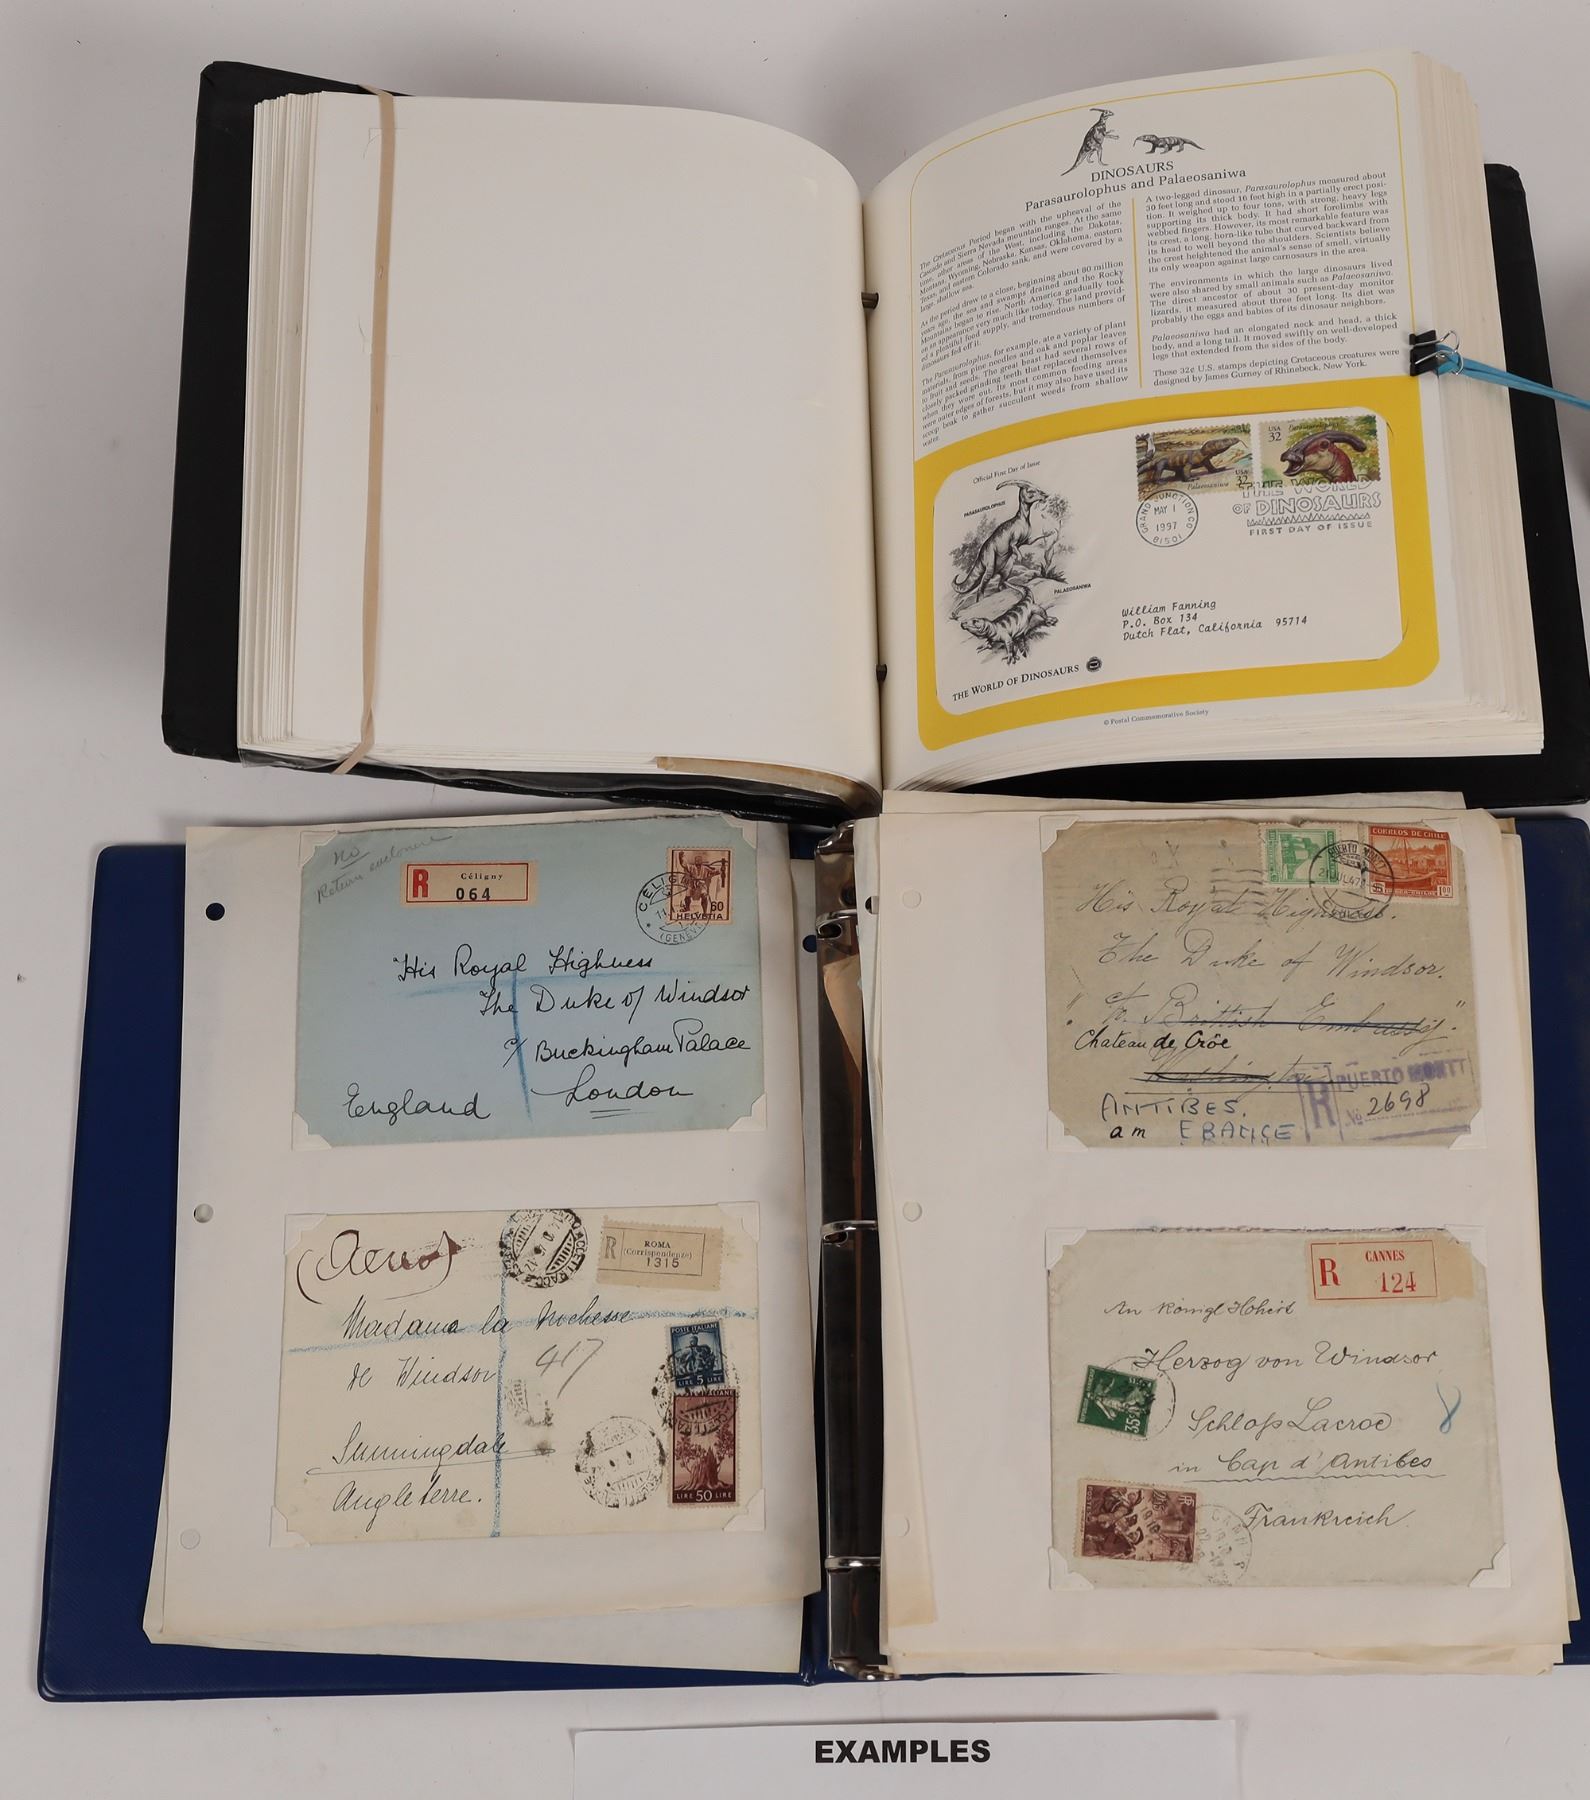 DINOSAURS
Parasaurolophus and Palaeosaniwa
The Cretaceous Period began with the upheaval of the
Cascade and Sierra Nevada mountain ranges. At the same
time, other areas of the West, including the Dakotas,
Montana, Wyoming, Nebraska, Kansas, Oklahoma, eastern
Texas, and eastern Colorado sank, and were covered by a
large, shallow sea.
As the period drew to a close, beginning about 80 million
years ago, the sea and swamps drained and the Rocky
Mountains began to rise. North America gradually took
on an appearance very much like today. The land provid-
ed a plentiful food supply, and tremendous numbers of
dinosaurs fed off it.
The Parasaurolophus, for example, ate a variety of plant
materials, from pine needles and oak and poplar leaves
to fruit and seeds. The great beast had several rows of
closely packed grinding teeth that replaced themselves
when they wore out. Its most common feeding areas
were outer edges of forests, but it may also have used its
scoop beak to gather succulent weeds from shallow
water.
A two-legged dinosaur, Parasaurolophus measured about
30 feet long and stood 16 feet high in a partially erect posi-
tion. It weighed up to four tons, with strong, heavy legs
supporting its thick body. It had short forelimbs with
webbed fingers. However, its most remarkable feature was
its crest, a long, horn-like tube that curved backward from
its head to well beyond the shoulders. Scientists believe
the crest heightened the animal's sense of smell, virtually
its only weapon against large carnosaurs in the area.
The environments in which the large dinosaurs lived
were also shared by small animals such as Palaeosaniwa.
The direct ancestor of about 30 present-day monitor
lizards, it measured about three feet long. Its diet was
probably the eggs and babies of its dinosaur neighbors.
Palaeosaniwa had an elongated neck and head, a thick
body, and a long tail. It moved swiftly on well-developed
legs that extended from the sides of the body.
These 32¢ U.S. stamps depicting Cretaceous creatures were
designed by James Gurney of Rhinebeck, New York.
Official First Day of Issue
PARASAUROLOPHUS
PALAEOSANIWA
THE WORLD OF DINOSAURS
Palaeosaniwa
USA
32
USA
32
Parasaurolophus
GRAND JUNCTION CO
MAY 1
1997
81501
THE WORLD
OF DINOSAURS
FIRST DAY OF ISSUE
William Fanning
P.O. Box 134
Dutch Flat, California 95714
© Postal Commemorative Society
No
Return enclosure
R
Céligny
064
60
HELVETIA
CÉLIGNY
(GENÈVE)
His Royal Highness
The Duke of Windsor
c/ Buckingham Palace
London
England
CORREOS DE CHILE
PUERTO MONTT
21 JUL 47
His Royal Highness.
The Duke of Windsor.
"c/o. British Embassy"
Chateau de Cröe
Washington
ANTIBES.
am FRANCE
R
PUERTO MONTT
No 2698
(Aereo)
R
ROMA
(Corrispondenze)
1315
Madama la Duchesse
de Windsor
417
Sunningdale
Angleterre.
POSTE ITALIANE
LIRE 5 LIRE
LIRE 50 LIRE
R
CANNES
124
An Königl Hoheit
Herzog von Windsor
Schloß Lacroe
in Cap d'Antibes
Frankreich.
8
EXAMPLES